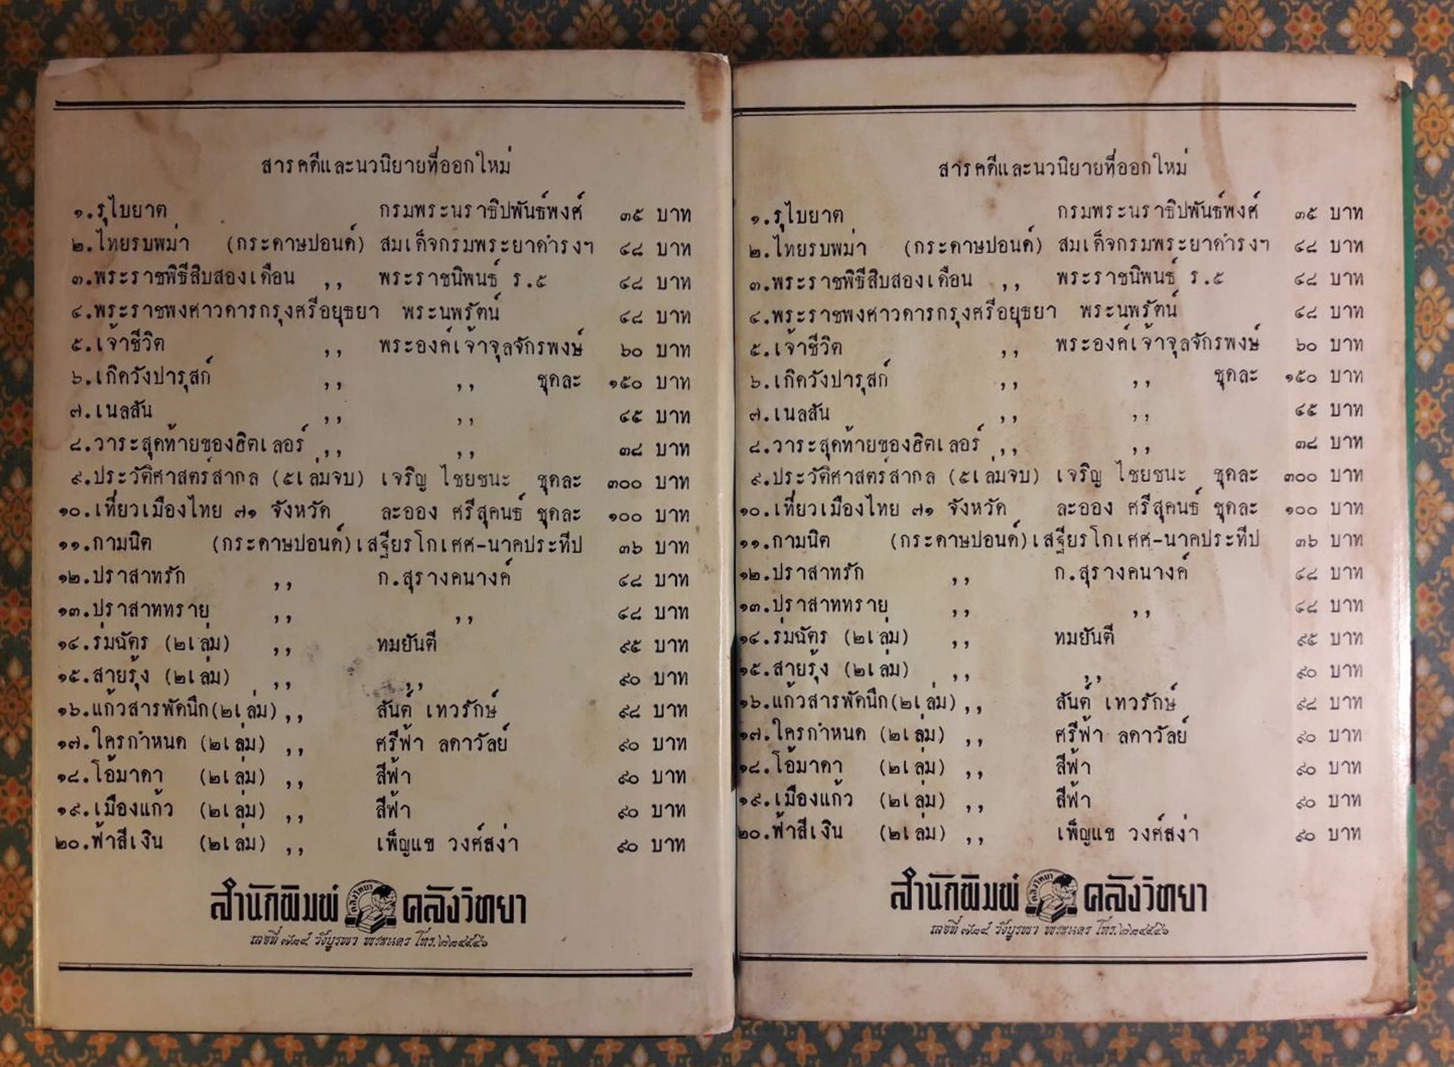 สารคดีและนวนิยายที่ออกใหม่
๑.รุไบยาต กรมพระนราธิปพันธ์พงศ์ ๓๕ บาท
๒.ไทยรบพม่า (กระดาษปอนด์) สมเด็จกรมพระยาดำรงฯ ๔๘ บาท
๓.พระราชพิธีสิบสองเดือน ,, พระราชนิพนธ์ ร.๕ ๔๘ บาท
๔.พระราชพงศาวดารกรุงศรีอยุธยา พระนพรัตน์ ๔๘ บาท
๕.เจ้าชีวิต ,, พระองค์เจ้าจุลจักรพงษ์ ๖๐ บาท
๖.เกิดวังปารุสก์ ,, ,, ชุดละ ๑๕๐ บาท
๗.เนลสัน ,, ,, ๔๕ บาท
๘.วาระสุดท้ายของฮิตเลอร์ ,, ,, ๓๘ บาท
๙.ประวัติศาสตร์สากล (๕เล่มจบ) เจริญ ไชยชนะ ชุดละ ๓๐๐ บาท
๑๐.เที่ยวเมืองไทย ๗๑ จังหวัด ละออง ศรีสุคนธ์ ชุดละ ๑๐๐ บาท
๑๑.กามนิต (กระดาษปอนด์) เสฐียรโกเศศ-นาคประทีป ๓๖ บาท
๑๒.ปราสาทรัก ,, ก.สุรางคนางค์ ๔๘ บาท
๑๓.ปราสาททราย ,, ,, ๔๘ บาท
๑๔.ร่มฉัตร (๒เล่ม) ,, ทมยันตี ๙๕ บาท
๑๕.สายรุ้ง (๒เล่ม) ,, ,, ๙๐ บาท
๑๖.แก้วสารพัดนึก(๒เล่ม) ,, สันต์ เทวรักษ์ ๙๘ บาท
๑๗.ใครกำหนด (๒เล่ม) ,, ศรีฟ้า ลดาวัลย์ ๙๐ บาท
๑๘.โอ้มาดา (๒เล่ม) ,, สีฟ้า ๙๐ บาท
๑๙.เมืองแก้ว (๒เล่ม) ,, สีฟ้า ๙๐ บาท
๒๐.ฟ้าสีเงิน (๒เล่ม) ,, เพ็ญแข วงศ์สง่า ๙๐ บาท
สำนักพิมพ์ คลังวิทยา คลังวิทยา
เลขที่ ๗๒๙ วังบูรพา พระนคร โทร.๒๒๔๕๕๖
สารคดีและนวนิยายที่ออกใหม่
๑.รุไบยาต กรมพระนราธิปพันธ์พงศ์ ๓๕ บาท
๒.ไทยรบพม่า (กระดาษปอนด์) สมเด็จกรมพระยาดำรงฯ ๔๘ บาท
๓.พระราชพิธีสิบสองเดือน ,, พระราชนิพนธ์ ร.๕ ๔๘ บาท
๔.พระราชพงศาวดารกรุงศรีอยุธยา พระนพรัตน์ ๔๘ บาท
๕.เจ้าชีวิต ,, พระองค์เจ้าจุลจักรพงษ์ ๖๐ บาท
๖.เกิดวังปารุสก์ ,, ,, ชุดละ ๑๕๐ บาท
๗.เนลสัน ,, ,, ๔๕ บาท
๘.วาระสุดท้ายของฮิตเลอร์ ,, ,, ๓๘ บาท
๙.ประวัติศาสตร์สากล (๕เล่มจบ) เจริญ ไชยชนะ ชุดละ ๓๐๐ บาท
๑๐.เที่ยวเมืองไทย ๗๑ จังหวัด ละออง ศรีสุคนธ์ ชุดละ ๑๐๐ บาท
๑๑.กามนิต (กระดาษปอนด์) เสฐียรโกเศศ-นาคประทีป ๓๖ บาท
๑๒.ปราสาทรัก ,, ก.สุรางคนางค์ ๔๘ บาท
๑๓.ปราสาททราย ,, ,, ๔๘ บาท
๑๔.ร่มฉัตร (๒เล่ม) ,, ทมยันตี ๙๕ บาท
๑๕.สายรุ้ง (๒เล่ม) ,, ,, ๙๐ บาท
๑๖.แก้วสารพัดนึก(๒เล่ม) ,, สันต์ เทวรักษ์ ๙๘ บาท
๑๗.ใครกำหนด (๒เล่ม) ,, ศรีฟ้า ลดาวัลย์ ๙๐ บาท
๑๘.โอ้มาดา (๒เล่ม) ,, สีฟ้า ๙๐ บาท
๑๙.เมืองแก้ว (๒เล่ม) ,, สีฟ้า ๙๐ บาท
๒๐.ฟ้าสีเงิน (๒เล่ม) ,, เพ็ญแข วงศ์สง่า ๙๐ บาท
สำนักพิมพ์ คลังวิทยา คลังวิทยา
เลขที่ ๗๒๙ วังบูรพา พระนคร โทร.๒๒๔๕๕๖